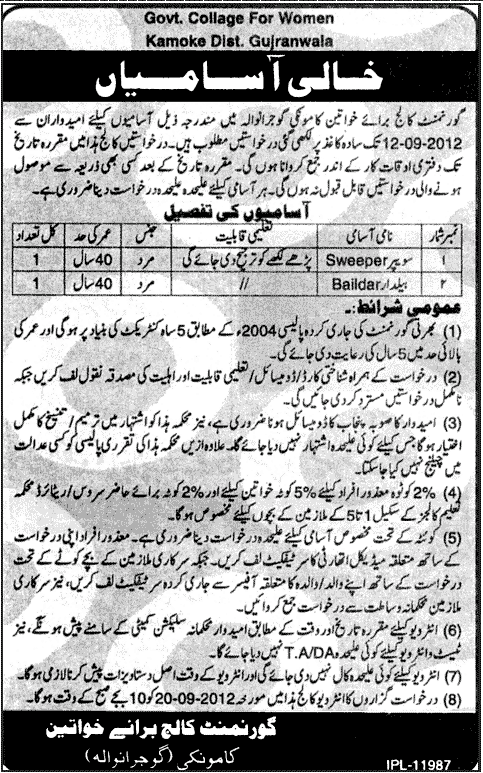 Govt. Collage For Women
Kamoke Dist. Gujranwala
خالی آسامیاں
گورنمنٹ کالج برائے خواتین کامونکی گوجرانوالہ میں مندرجہ ذیل آسامیوں کیلئے امیدواران سے
12-09-2012 تک سادہ کاغذ پر لکھی گئی درخواستیں مطلوب ہیں۔ درخواستیں کالج ہذا میں مقررہ تاریخ
تک دفتری اوقات کار کے اندر جمع کروانا ہوں گی۔ مقررہ تاریخ کے بعد کسی بھی ذریعہ سے موصول
ہونے والی درخواستیں قابل قبول نہ ہوں گی۔ ہر آسامی کیلئے علیحدہ علیحدہ درخواست دینا ضروری ہے۔
آسامیوں کی تفصیل
نمبر شمار نامی آسامی تعلیمی قابلیت جنس عمر کی حد کل تعداد
۱ سویپر Sweeper پڑھے لکھے کو ترجیح دی جائے گی مرد 40 سال 1
۲ بیلدار Baildar // مرد 40 سال 1
عمومی شرائط:۔
(1) بھرتی گورنمنٹ کی جاری کردہ پالیسی 2004ء کے مطابق 5 سالہ کنٹریکٹ کی بنیاد پر ہوگی اور عمر کی
بالائی حد میں 5 سال کی رعایت دی جائے گی۔
(2) درخواست کے ہمراہ شناختی کارڈ/ڈومیسائل/تعلیمی قابلیت اور اہلیت کی مصدقہ نقول لف کریں جبکہ
نامکمل درخواستیں مسترد کردی جائیں گی۔
(3) امیدوار کا صوبہ پنجاب کا ڈومیسائل ہونا ضروری ہے، نیز محکمہ ہذا کو اشتہار میں ترمیم/تنسیخ کا مکمل
اختیار ہوگا جس کیلئے کوئی علیحدہ اشتہار نہیں دیا جائے گا۔ علاوہ ازیں محکمہ ہذا کی تقرری پالیسی کو کسی عدالت
میں چیلنج نہیں کیا جاسکتا۔
(4) 2% کوٹہ معذور افراد کیلئے 5% کوٹہ خواتین کیلئے اور 2% کوٹہ برائے حاضر سروس/ریٹائرڈ محکمہ
تعلیم کالجز کے سکیل 1 تا 5 کے ملازمین کے بچوں کیلئے مخصوص ہوگا۔
(5) کوٹہ کے تحت مخصوص آسامی کیلئے علیحدہ درخواست دینا ضروری ہے۔ معذور افراد اپنی درخواست
کے ساتھ متعلقہ میڈیکل اتھارٹی کا سرٹیفکیٹ لف کریں۔ جبکہ سرکاری ملازمین کے بچے کوٹے کے تحت
درخواست کے ساتھ اپنے والد/والدہ کا متعلقہ آفیسر سے جاری کردہ سرٹیفکیٹ لف کریں، نیز سرکاری
ملازمین محکمانہ وساطت سے درخواست جمع کروائیں۔
(6) انٹرویو کیلئے مقررہ تاریخ اور وقت کے مطابق امیدوار محکمانہ سلیکشن کمیٹی کے سامنے پیش ہونگے، نیز
ٹیسٹ و انٹرویو کیلئے کوئی علیحدہ T.A/DA نہیں دیا جائے گا۔
(7) انٹرویو کیلئے کوئی علیحدہ کال نہیں دی جائے گی اور انٹرویو کے وقت اصل دستاویزات پیش کرنا لازمی ہوگا۔
(8) درخواست گزاروں کا انٹرویو کالج ہذا میں مورخہ 20-09-2012 کو 10 بجے صبح کے وقت ہوگا۔
گورنمنٹ کالج برائے خواتین
کامونکی (گوجرانوالہ)
IPL-11987